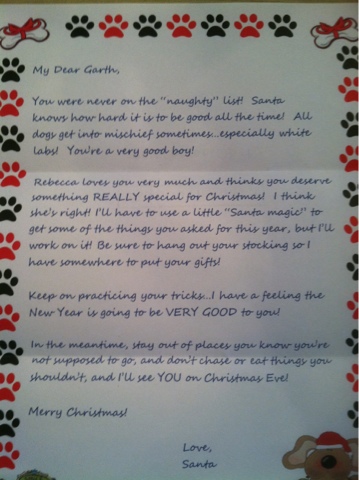 My Dear Garth,
You were never on the "naughty" list! Santa
knows how hard it is to be good all the time! All
dogs get into mischief sometimes...especially white
labs! You're a very good boy!
Rebecca loves you very much and thinks you deserve
something REALLY special for Christmas! I think
she's right! I'll have to use a little "Santa magic" to
get some of the things you asked for this year, but I'll
work on it! Be sure to hang out your stocking so I
have somewhere to put your gifts!
Keep on practicing your tricks...I have a feeling the
New Year is going to be VERY GOOD to you!
In the meantime, stay out of places you know you're
not supposed to go, and don't chase or eat things you
shouldn't, and I'll see YOU on Christmas Eve!
Merry Christmas!
Love,
Santa